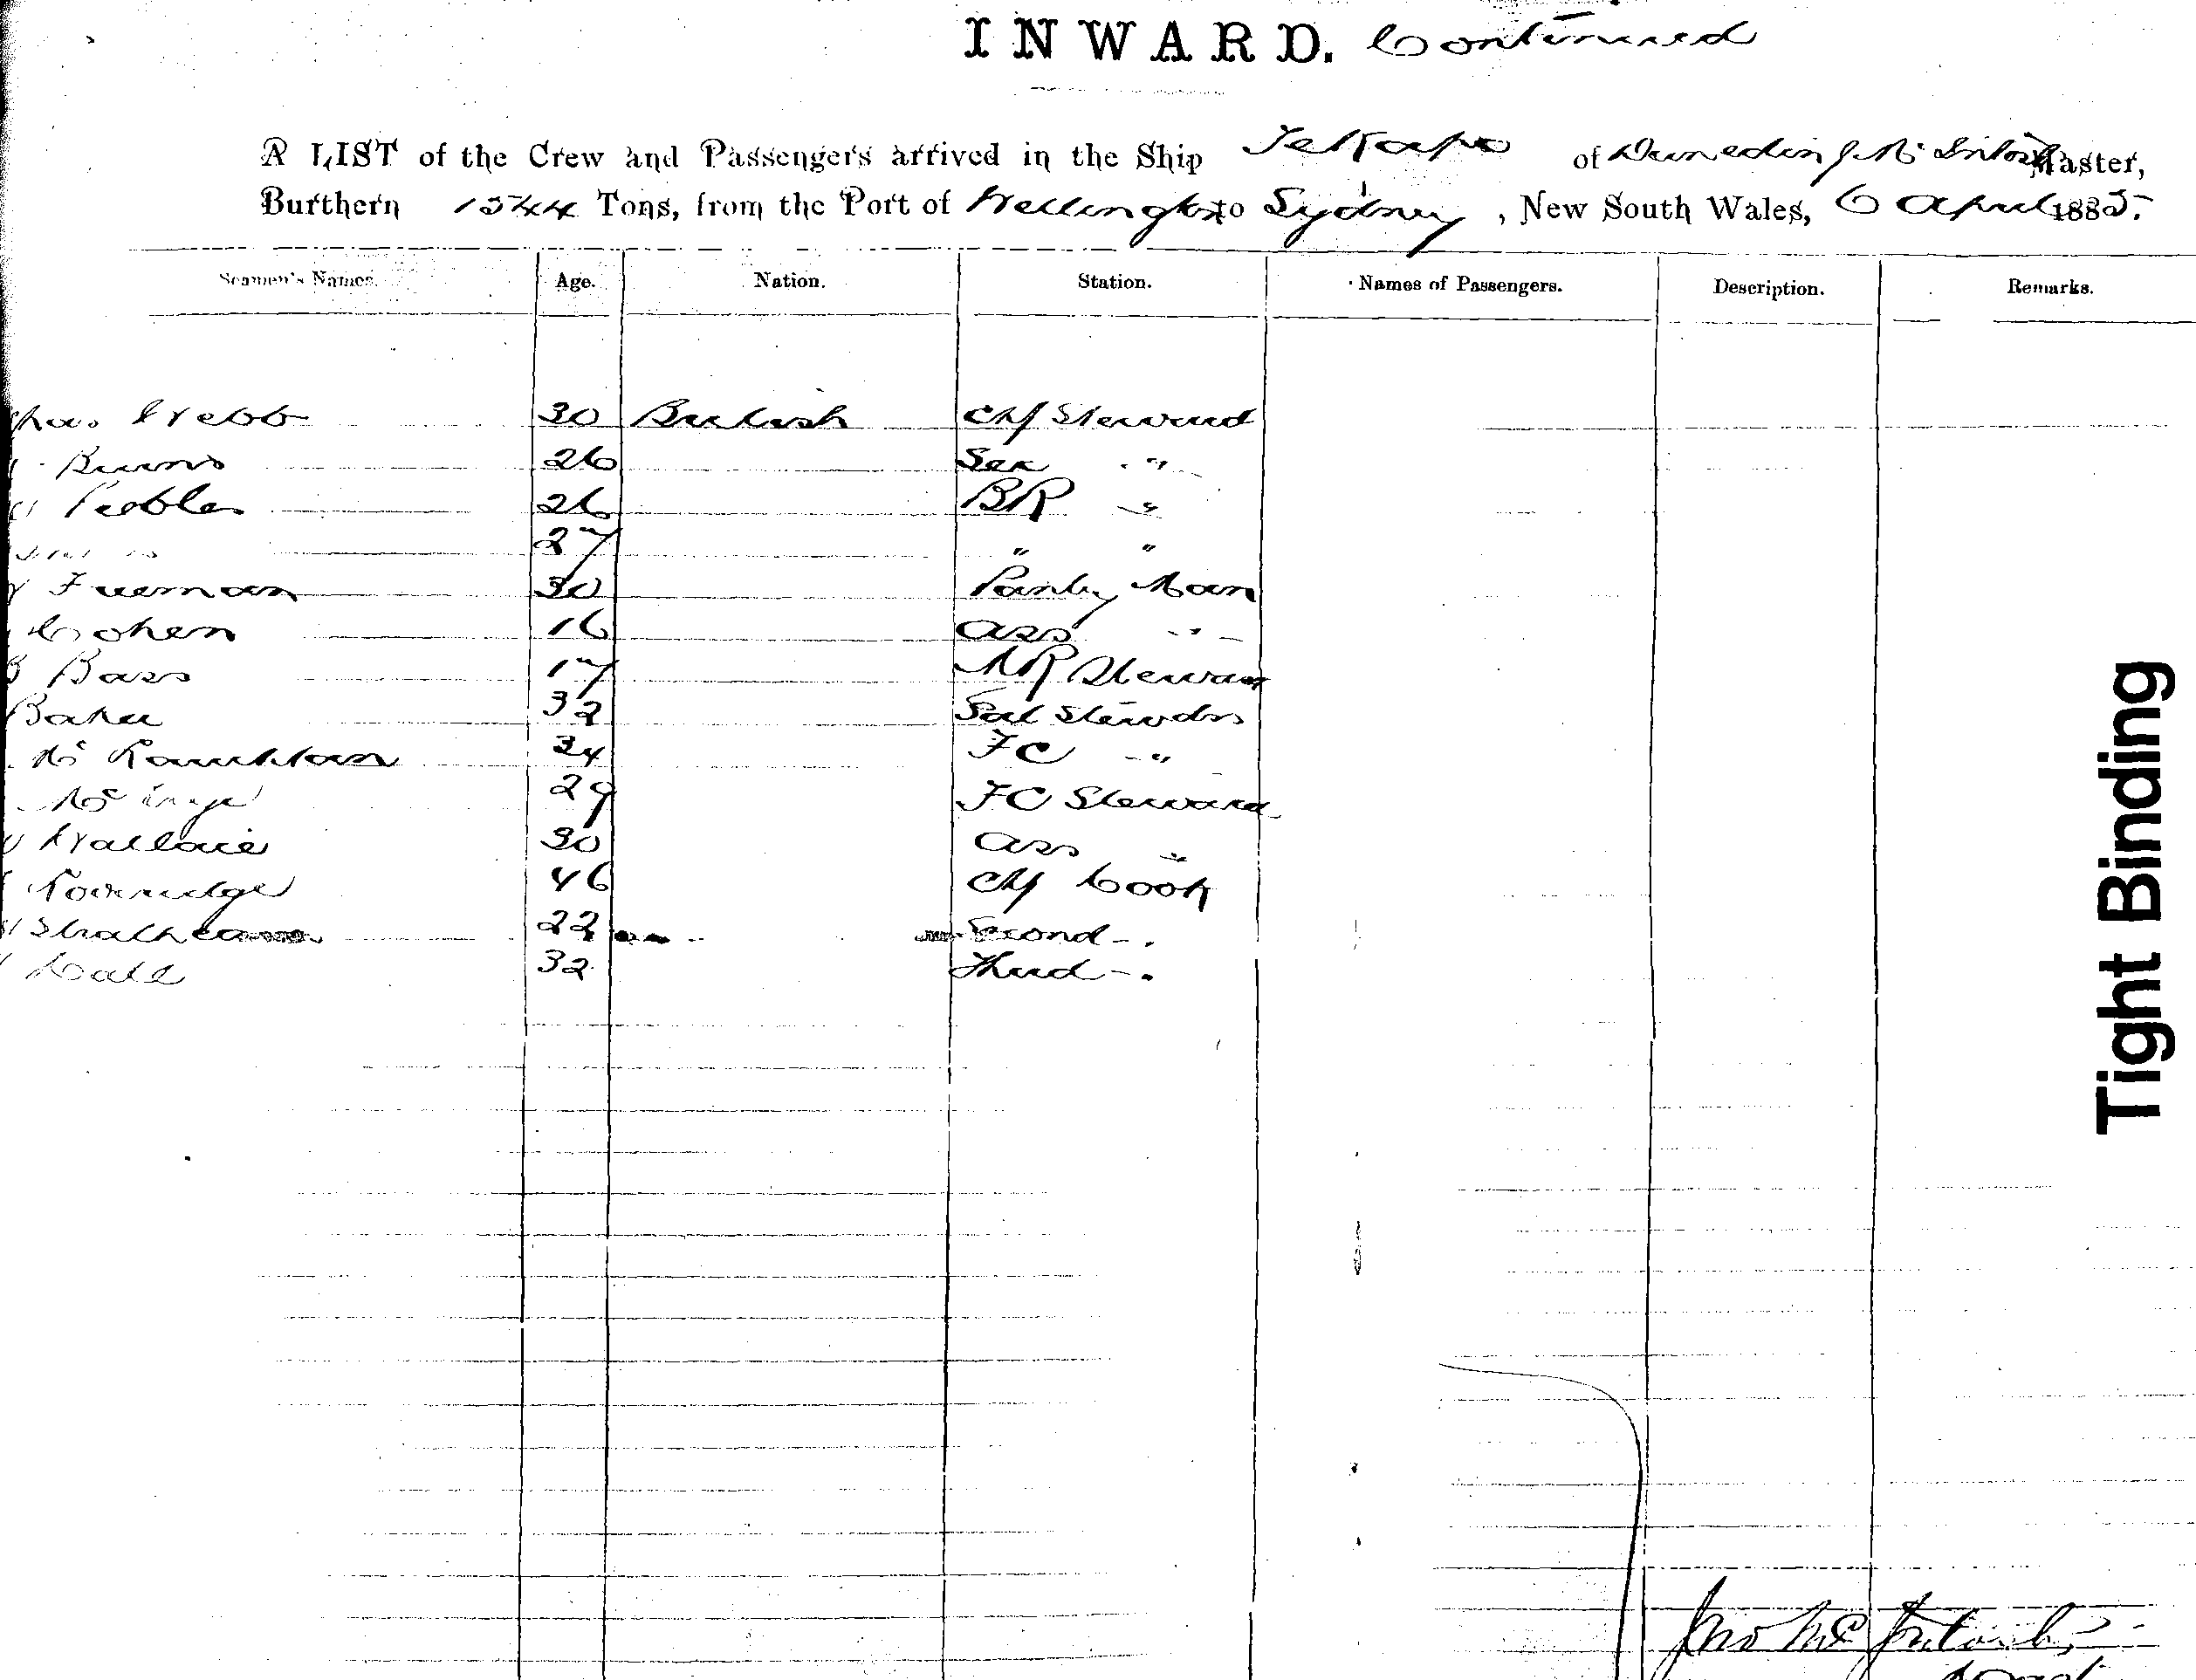 INWARD. Continued
A LIST of the Crew and Passengers arrived in the Ship Tekapo of Dunedin J Mc Intosh Master,
Burthern 1544 Tons, from the Port of Wellington to Sydney, New South Wales, 6 April 1885.
Seamen's Names. Age. Nation. Station. Names of Passengers. Description. Remarks.
Chas Webb 30 British Chf Steward
Burns 26 Sec "
Peebles 26 BR "
27 " "
Freeman 30 Pantry Man
Cohen 16 Ass "
Bass 17 MR Steward
Baker 32 Sal Stewdss
Mc 34 FC "
Mc 29 FC Steward
Wallace 30 Ass "
46 Chf Cook
22 Second - .
32 Third - .
Jno Mc Intosh
Tight Binding